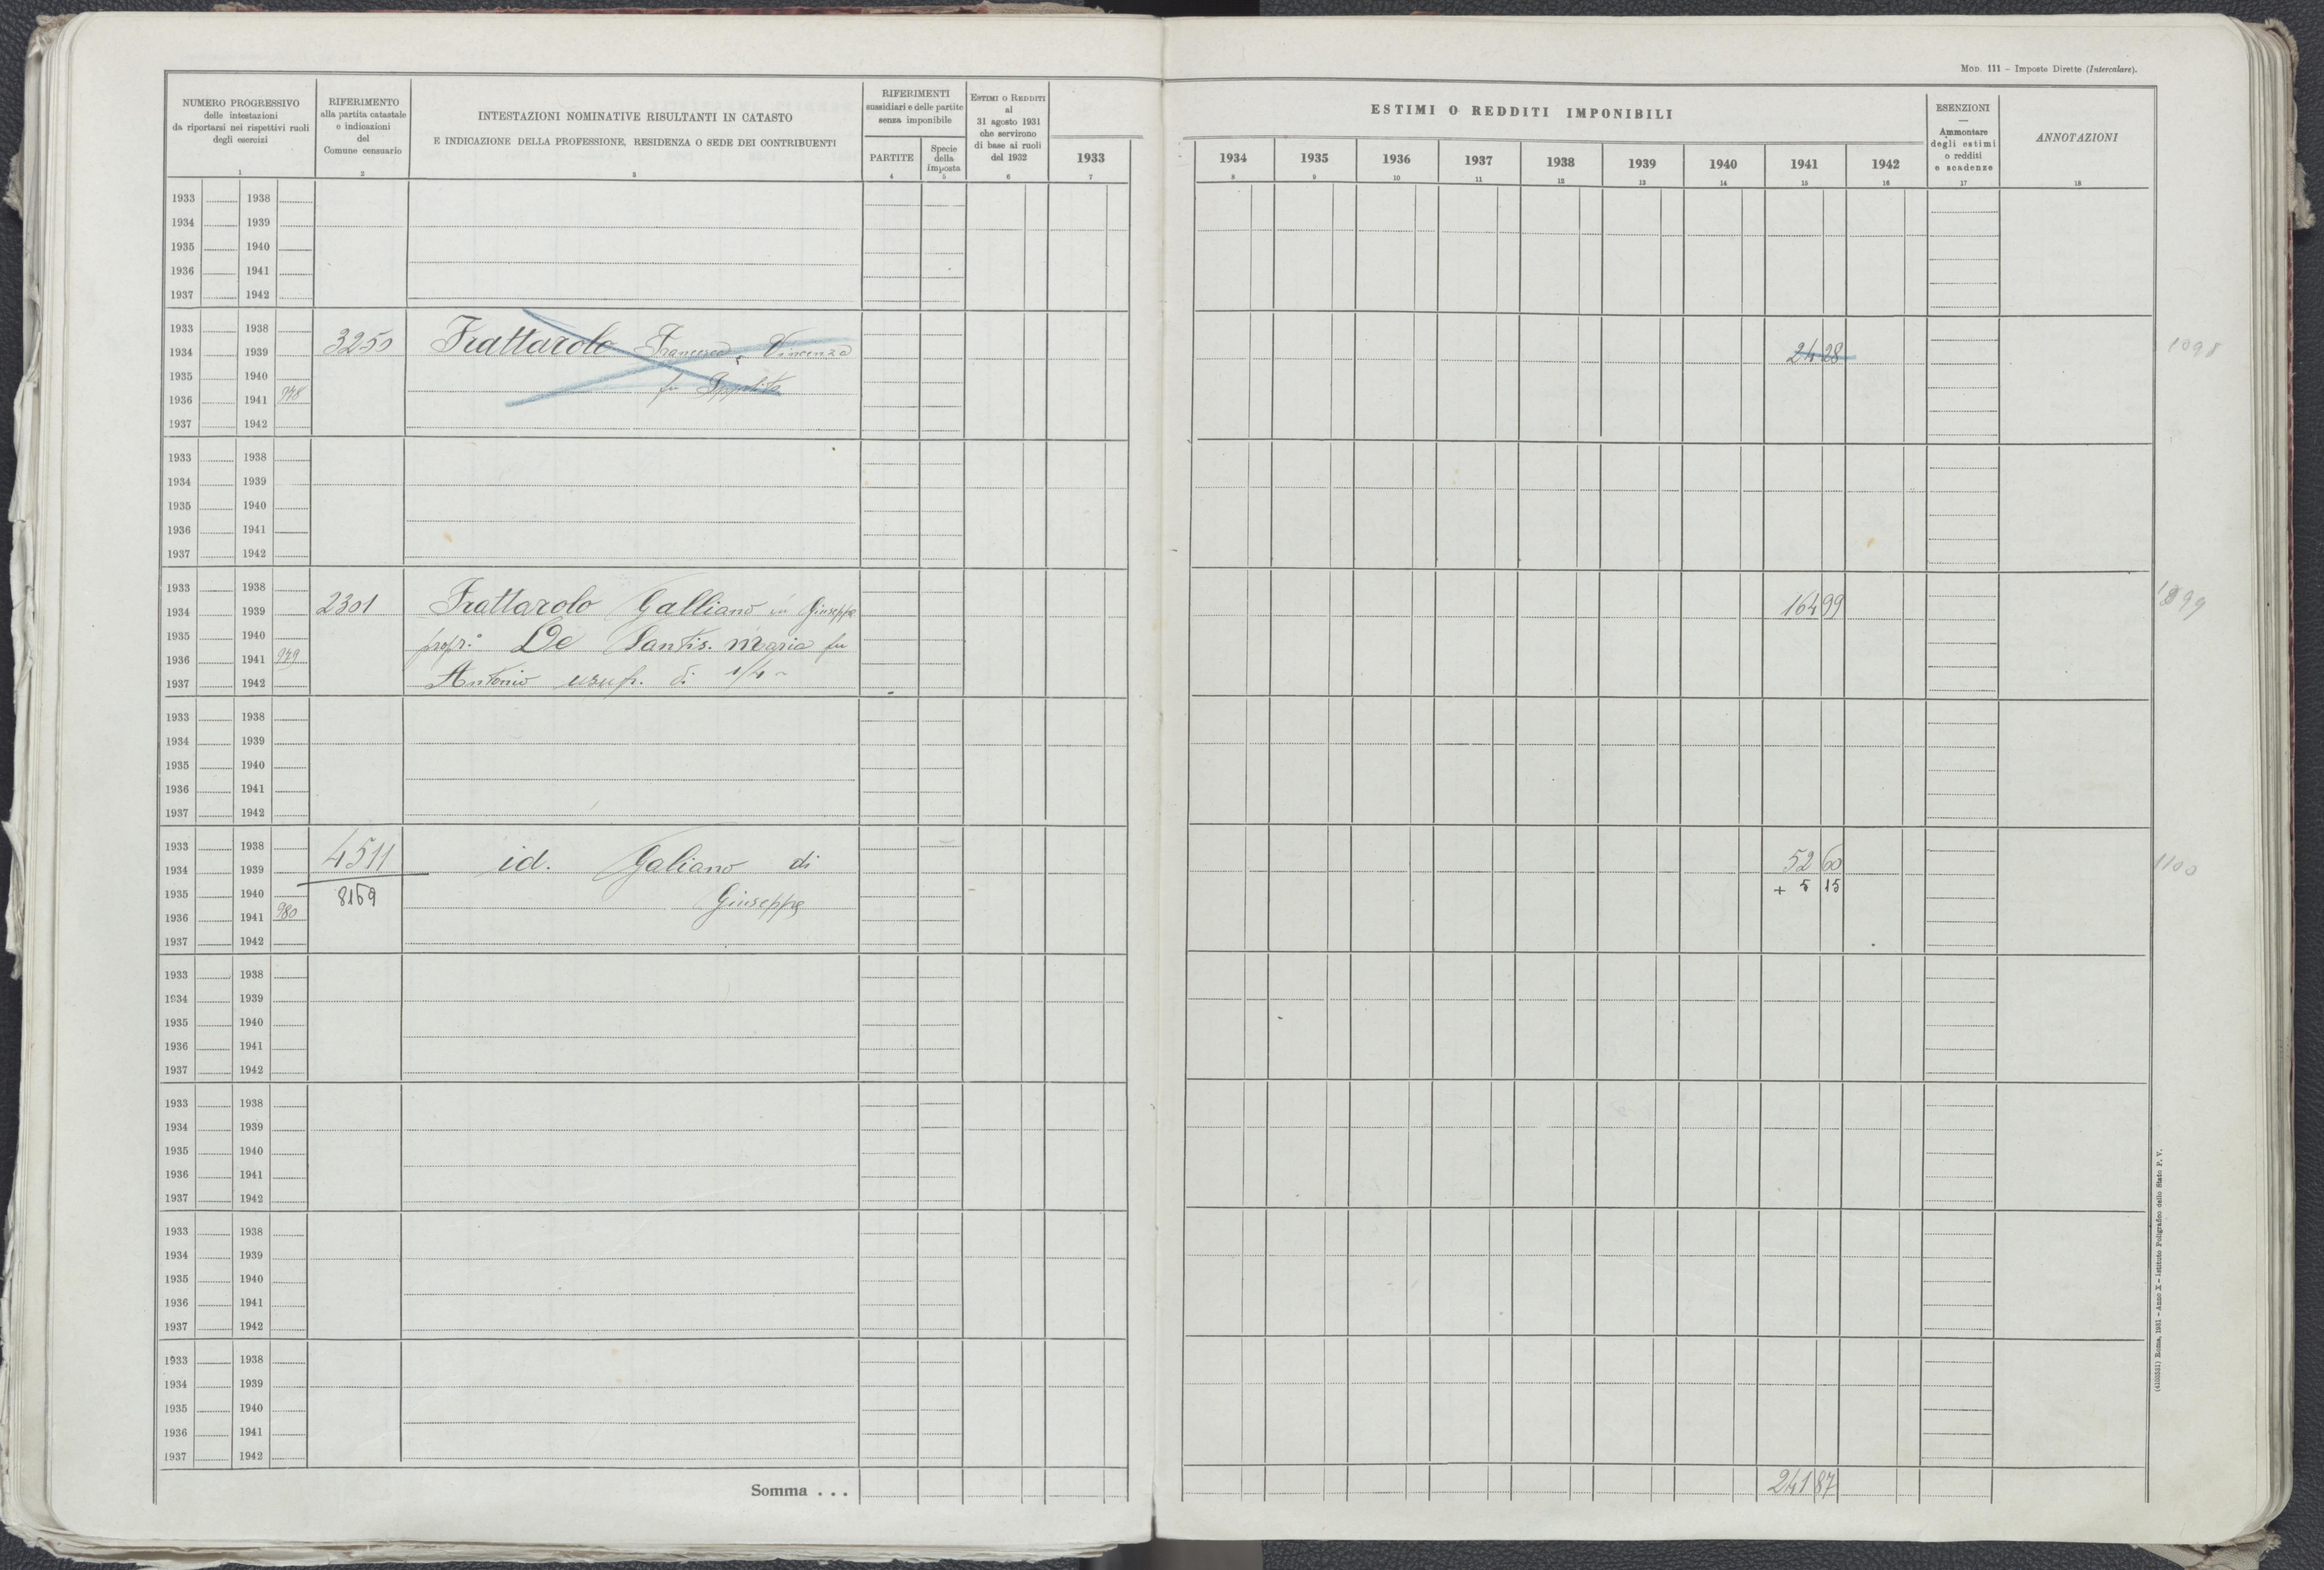 MOD. 111 - Imposte Dirette (Intercalare).
NUMERO PROGRESSIVO
delle intestazioni
da riportarsi nei rispettivi ruoli
degli esercizi
1
RIFERIMENTO
alla partita catastale
e indicazioni
del
Comune censuario
2
INTESTAZIONI NOMINATIVE RISULTANTI IN CATASTO
E INDICAZIONE DELLA PROFESSIONE, RESIDENZA O SEDE DEI CONTRIBUENTI
3
RIFERIMENTI
sussidiari e delle partite
senza imponibile
PARTITE
4
Specie
della
imposta
5
ESTIMI O REDDITI
al
31 agosto 1931
che servirono
di base ai ruoli
del 1932
6
1933
7
ESTIMI O REDDITI IMPONIBILI
1934 1935 1936 1937 1938 1939 1940 1941 1942
8 9 10 11 12 13 14 15 16
ESENZIONI
—
Ammontare
degli estimi
o redditi
e scadenze
17
ANNOTAZIONI
18
1933 1938
1934 1939
1935 1940
1936 1941
1937 1942
1933 1938
3250 Frattarolo Francesco e Vincenzo
1934 1939 24 28 1098
1935 1940 fu Ippolito
1936 1941 978
1937 1942
1933 1938
1934 1939
1935 1940
1936 1941
1937 1942
1933 1938
1934 1939 2301 Frattarolo Galliano di Giuseppe 164 99 1099
1935 1940 propr.º De Santis Maria fu
1936 1941 979
1937 1942 Antonio usuf. di 1/4
1933 1938
1934 1939
1935 1940
1936 1941
1937 1942
1933 1938
1934 1939 4511 id. Galiano di 52 60 1100
1935 1940 8159 + 5 15
1936 1941 980 Giuseppe
1937 1942
1933 1938
1934 1939
1935 1940
1936 1941
1937 1942
1933 1938
1934 1939
1935 1940
1936 1941
1937 1942
1933 1938
1934 1939
1935 1940
1936 1941
1937 1942
1933 1938
1934 1939
1935 1940
1936 1941
1937 1942
Somma . . . 241 87
(410331) Roma, 1931 - Anno X - Istituto Poligrafico dello Stato P. V.